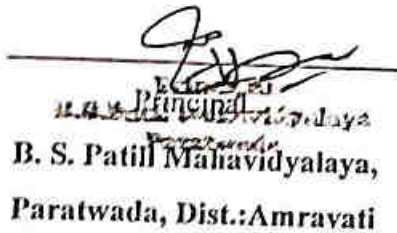 Principal
B. S. Patill Mahavidyalaya,
Paratwada, Dist.:Amravati